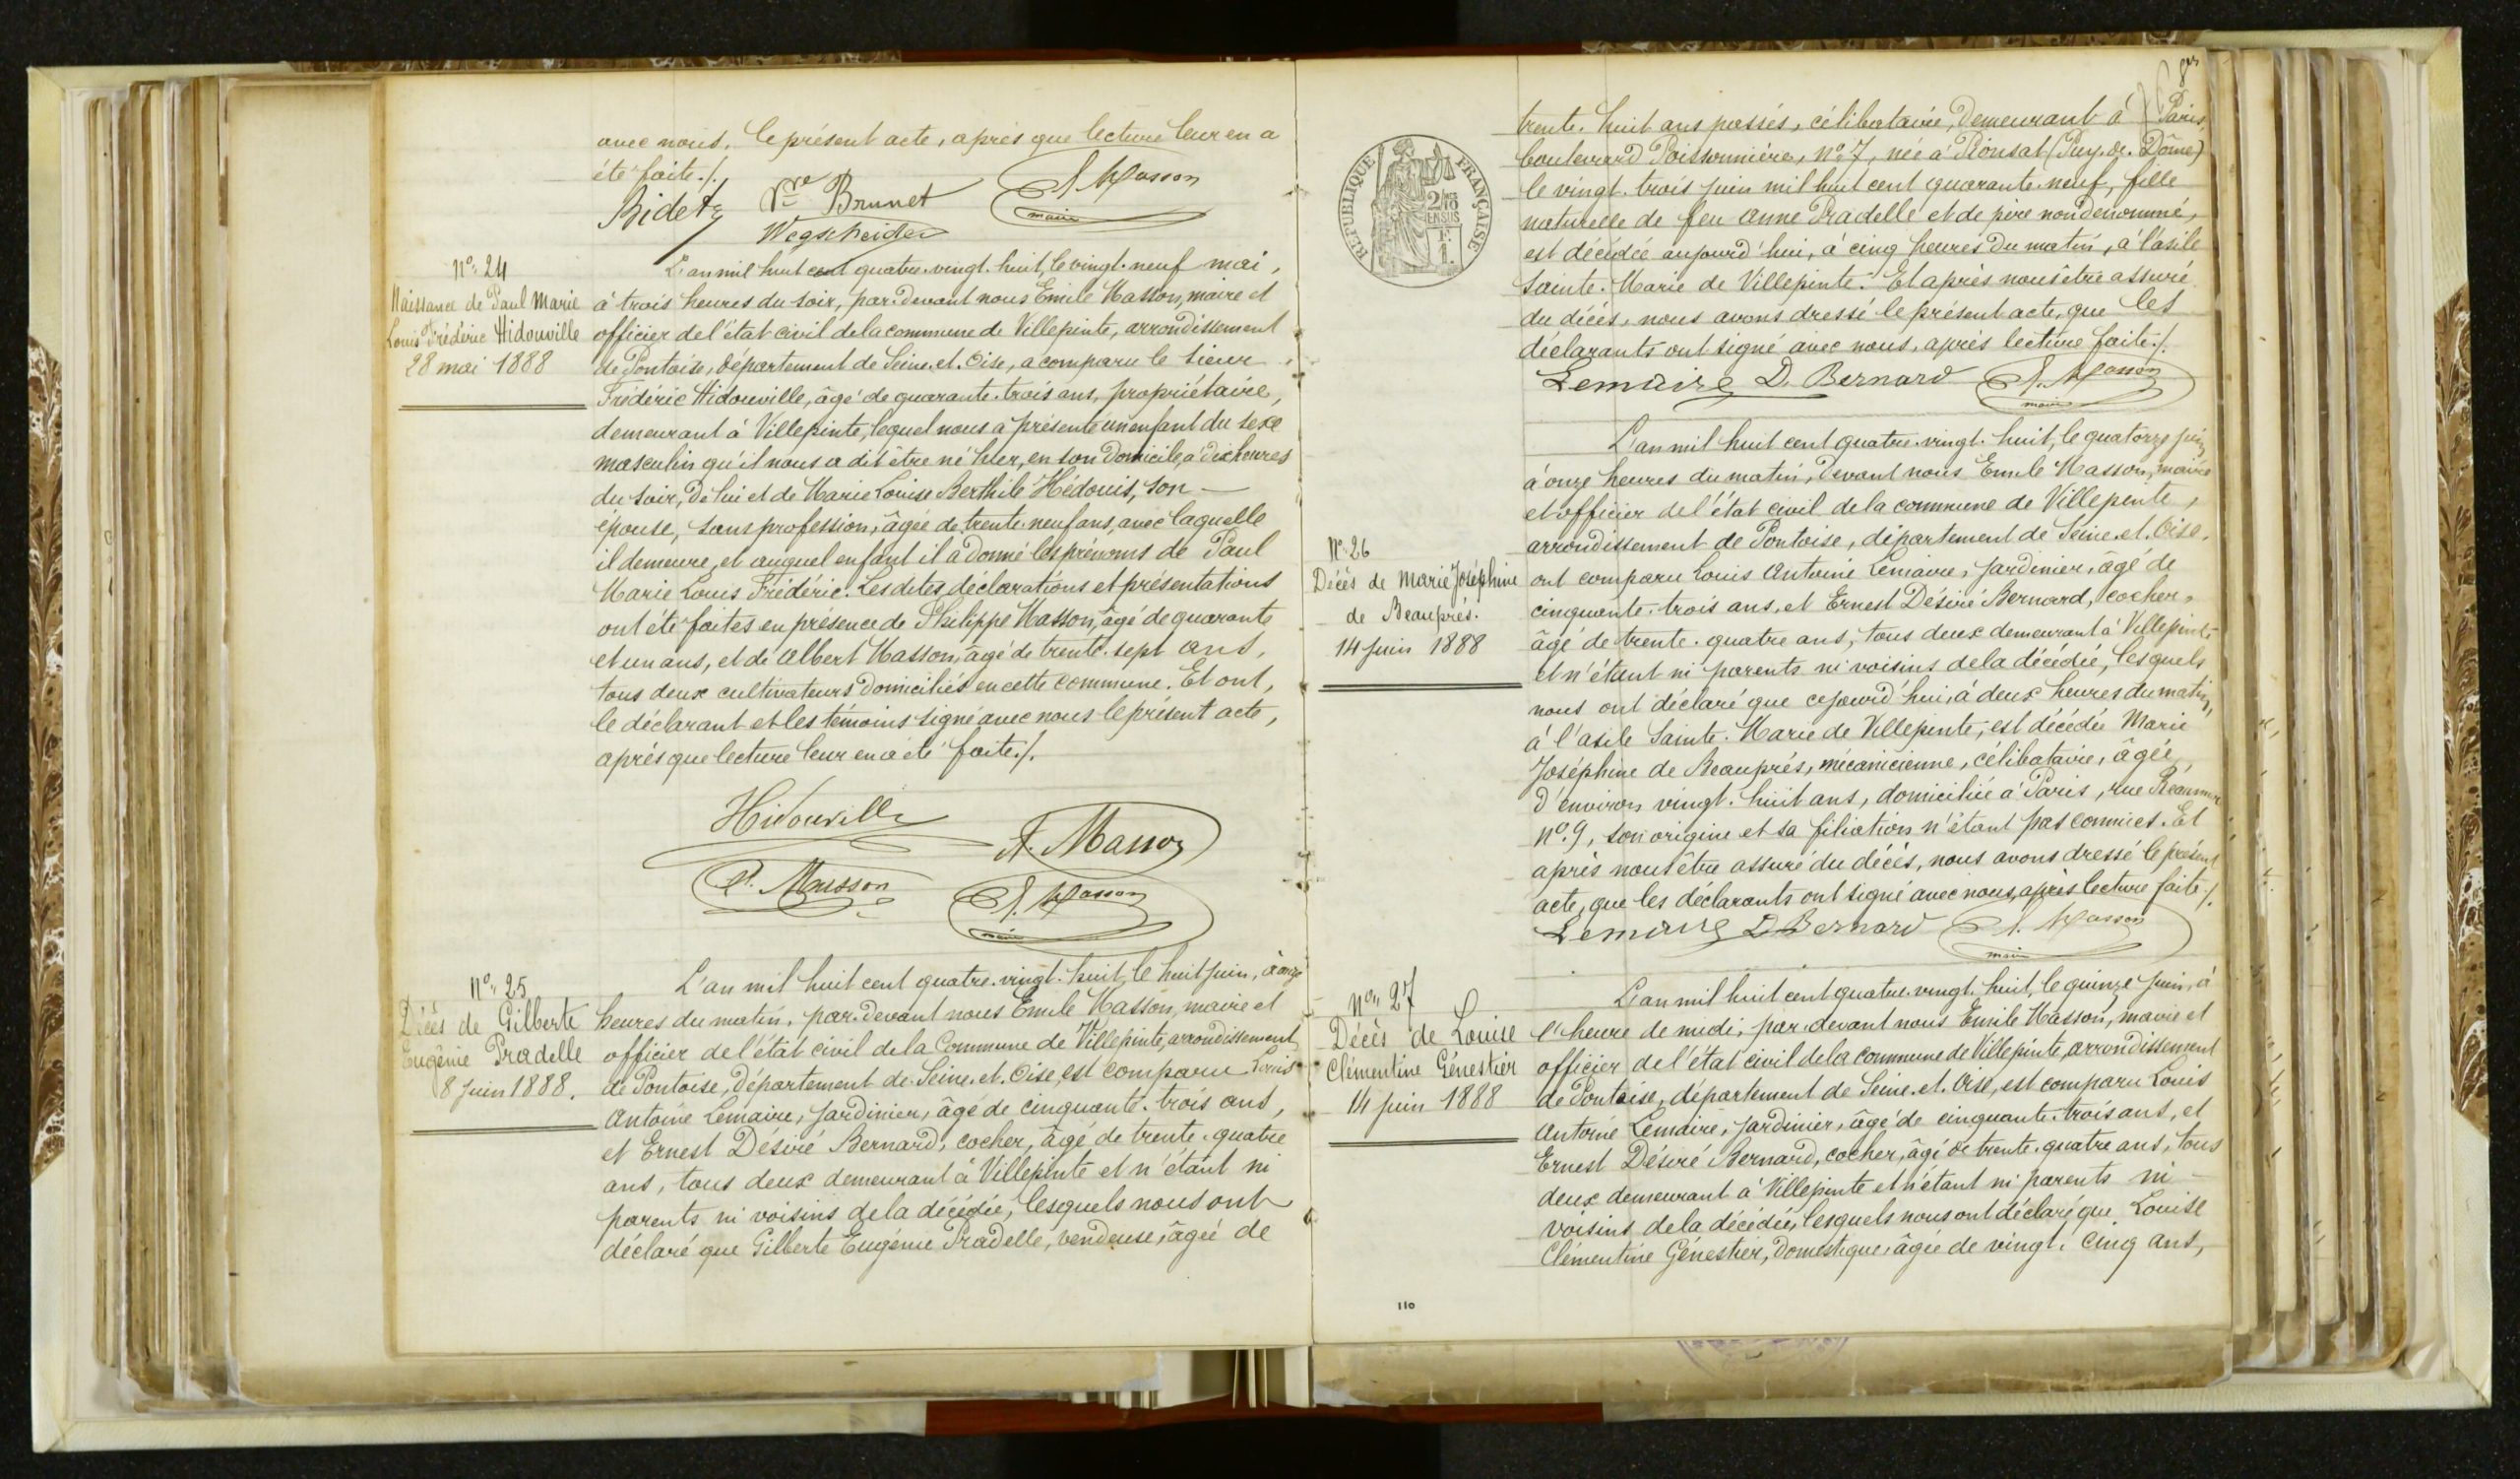 avec nous, le présent acte, après que lecture leur en a
été faite./.
Bidet Vve Brunet Masson
Wegscheider maire
No. 24
Naissance de Paul Marie
Louis Frédéric Hidouville
28 mai 1888
L'an mil huit cent quatre-vingt-huit, le vingt-neuf mai,
à trois heures du soir, par-devant nous Emile Masson, maire et
officier de l'état civil de la commune de Villepinte, arrondissement
de Pontoise, département de Seine-et-Oise, a comparu le sieur
Frédéric Hidouville, âgé de quarante-trois ans, propriétaire,
demeurant à Villepinte, lequel nous a présenté un enfant du sexe
masculin qu'il nous a dit être né hier, en son domicile, à dix heures
du soir, de lui et de Marie Louise Berthile Hédouis, son
épouse, sans profession, âgée de trente-neuf ans, avec laquelle
il demeure, et auquel enfant il a donné les prénoms de Paul
Marie Louis Frédéric. Lesdites déclarations et présentations
ont été faites en présence de Philippe Masson, âgé de quarante
et un ans, et de Albert Masson, âgé de trente-sept ans,
tous deux cultivateurs domiciliés en cette commune. Et ont,
le déclarant et les témoins signé avec nous le présent acte,
après que lecture leur en a été faite./.
Hidouville
A. Masson
P. Masson
Masson
maire
No. 25
Décès de Gilberte
Eugénie Pradelle
8 juin 1888.
L'an mil huit cent quatre-vingt-huit, le huit juin, à onze
heures du matin, par-devant nous Emile Masson, maire et
officier de l'état civil de la Commune de Villepinte, arrondissement
de Pontoise, département de Seine-et-Oise, est comparu Louis
Antoine Lemaire, jardinier, âgé de cinquante-trois ans,
et Ernest Désiré Bernard, cocher, âgé de trente-quatre
ans, tous deux demeurant à Villepinte et n'étant ni
parents ni voisins de la décédée, lesquels nous ont
déclaré que Gilberte Eugénie Pradelle, vendeuse, âgée de
REPUBLIQUE FRANÇAISE
2/10 EN SUS
trente-huit ans passés, célibataire, demeurant à Paris,
boulevard Poissonnière, no. 7, née à Pionsat (Puy-de-Dôme)
le vingt-trois juin mil huit cent quarante-neuf, fille
naturelle de feu Anne Pradelle et de père non dénommé,
est décédée aujourd'hui, à cinq heures du matin, à l'asile
Sainte-Marie de Villepinte. Et après nous être assuré
du décès, nous avons dressé le présent acte, que les
déclarants ont signé avec nous, après lecture faite./.
Lemaire D. Bernard Masson
maire
No. 26
Décès de Marie Joséphine
de Beauprés.
14 juin 1888
L'an mil huit cent quatre-vingt-huit, le quatorze juin
à onze heures du matin, devant nous Emile Masson, maire
et officier de l'état civil de la commune de Villepinte,
arrondissement de Pontoise, département de Seine-et-Oise,
ont comparu Louis Antoine Lemaire, jardinier, âgé de
cinquante-trois ans, et Ernest Désiré Bernard, cocher,
âgé de trente-quatre ans, tous deux demeurant à Villepinte
et n'étant ni parents ni voisins de la décédée, lesquels
nous ont déclaré que cejourd'hui, à deux heures du matin,
à l'asile Sainte-Marie de Villepinte, est décédée Marie
Joséphine de Beauprés, mécanicienne, célibataire, âgée
d'environ vingt-huit ans, domiciliée à Paris, rue Réaumur
no. 9, son origine et sa filiation n'étant pas connues. Et
après nous être assuré du décès, nous avons dressé le présent
acte, que les déclarants ont signé avec nous, après lecture faite./.
Lemaire D Bernard Masson
maire
No. 27
Décès de Louise
Clémentine Génestier
14 juin 1888
L'an mil huit cent quatre-vingt-huit, le quinze juin, à
l'heure de midi, par-devant nous Emile Masson, maire et
officier de l'état civil de la commune de Villepinte, arrondissement
de Pontoise, département de Seine-et-Oise, est comparu Louis
Antoine Lemaire, jardinier, âgé de cinquante-trois ans, et
Ernest Désiré Bernard, cocher, âgé de trente-quatre ans, tous
deux demeurant à Villepinte et n'étant ni parents ni
voisins de la décédée, lesquels nous ont déclaré que Louise
Clémentine Génestier, domestique, âgée de vingt-cinq ans,
110